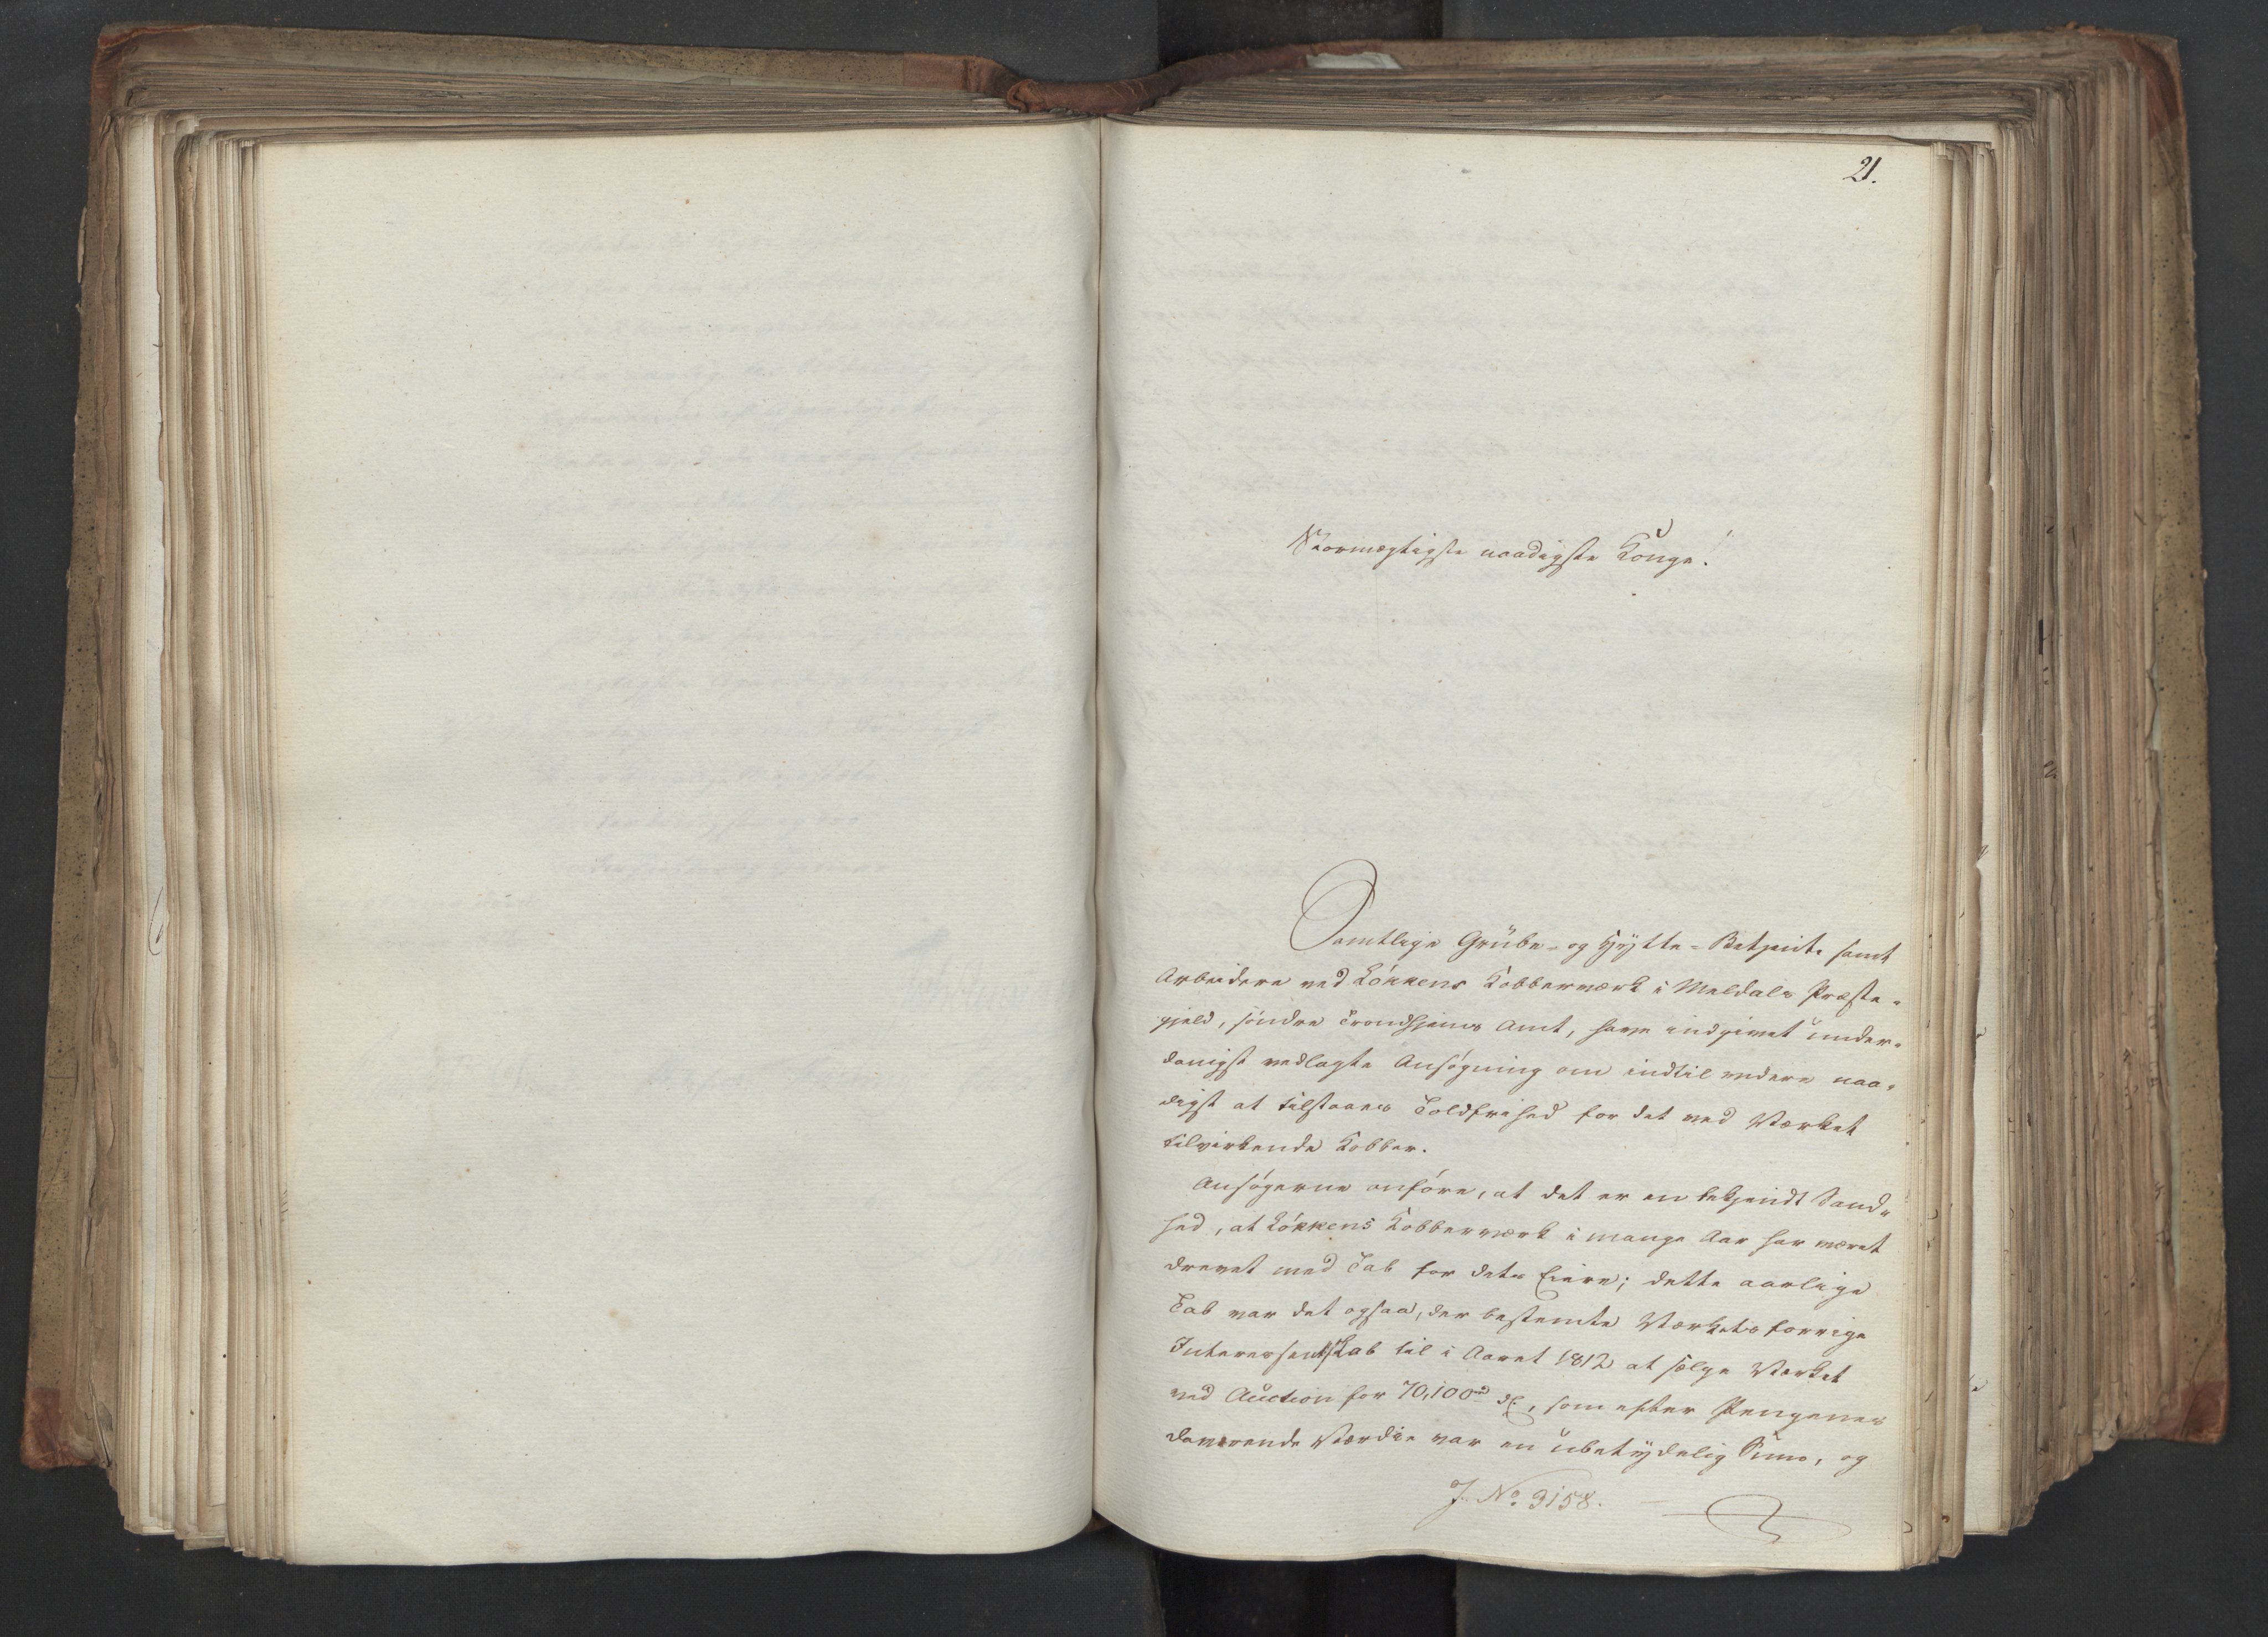 21.
Stormægtigste naadigste Konge!
Samtlige Grube- og Hytte-Betjente samt
Arbeidere ved Løkkens Kobberværk i Meldals Præste-
gjeld, søndre Trondhjems Amt, have indgivet under-
danigst vedlagte Ansøgning om indtil videre naa-
digst at tilstaaes Toldfrihed for det ved Værket
tilvirkende Kobber.
Ansøgerne anføre, at det er en bekjendt Sand-
hed, at Løkkens Kobberværk i mange Aar har været
drevet med Tab for dets Eiere; dette aarlige
Tab var det ogsaa, der bestemte Værkets forrige
Interessentskab til i Aaret 1812 at sælge Værket
ved Auction for 70,100 rd, som efter Pengenes
daværende Værdie var en ubetydelig Sum, og
J. No. 3158.